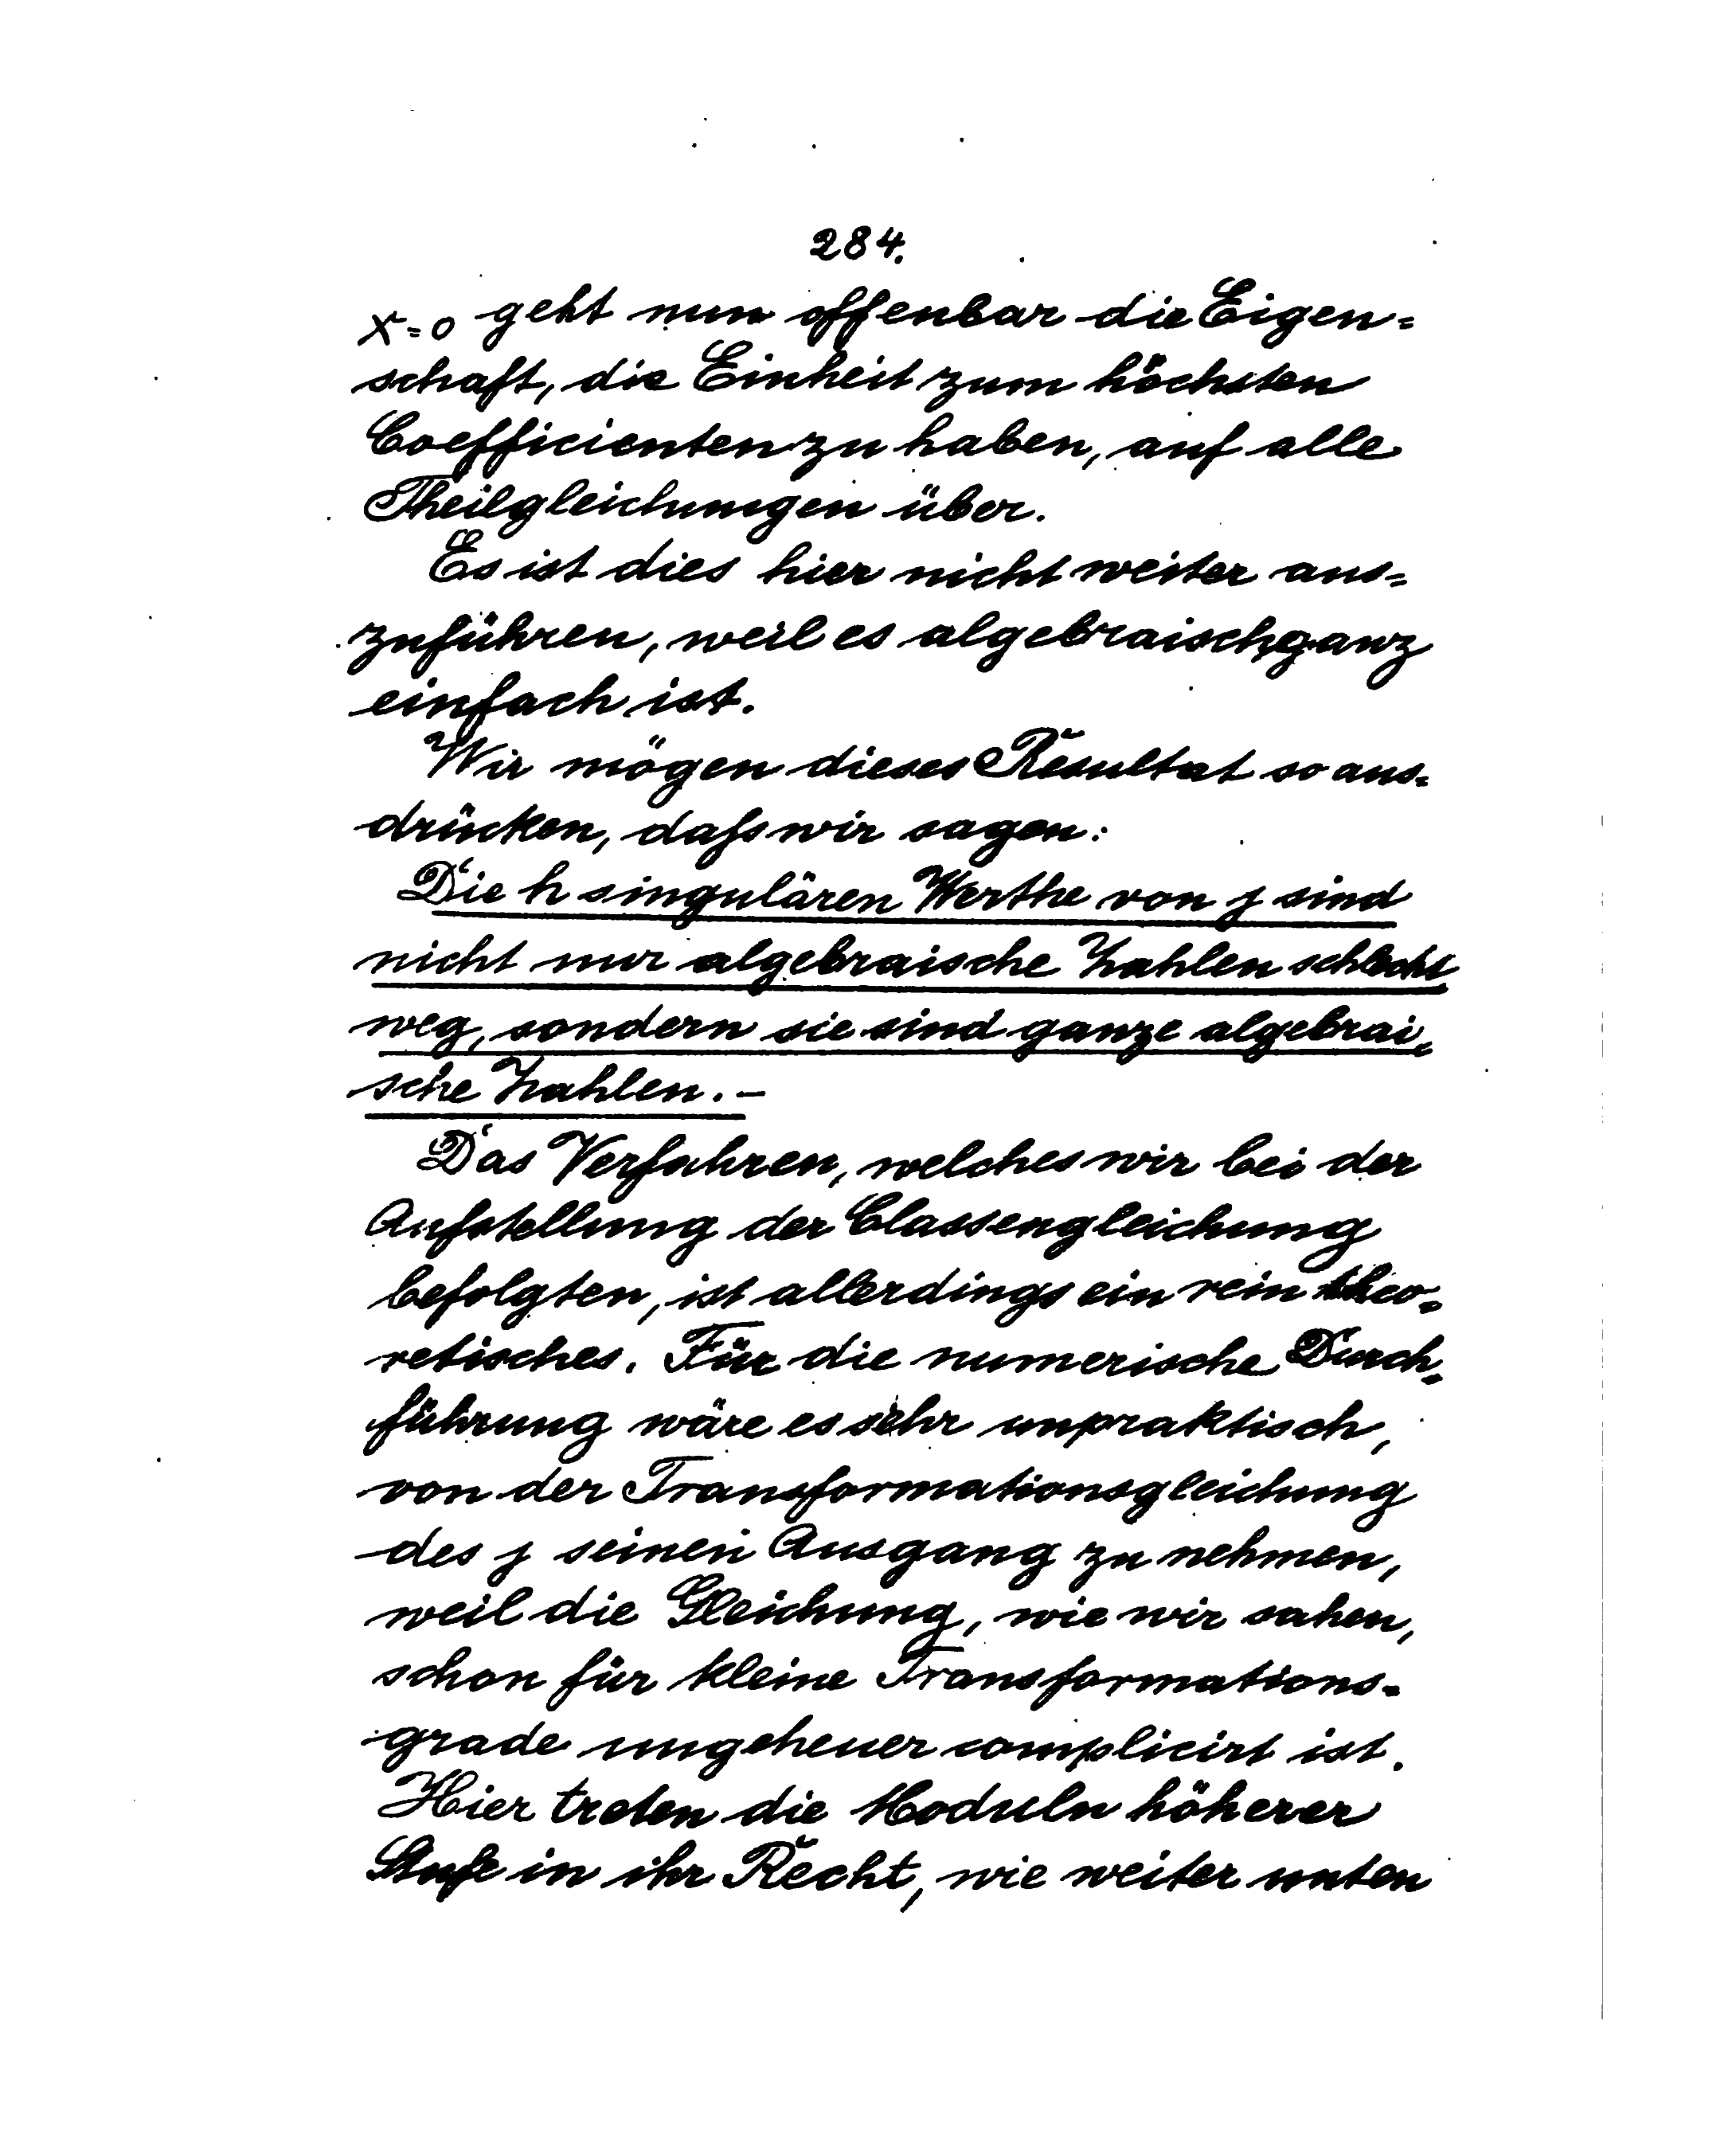 284.
X=0 geht nun offenbar die Eigen=
schaft, die Einheit zum höchsten
Coefficienten zu haben, auf alle
Theilgleichungen über.
Es ist dies hier nicht weiter aus=
zuführen, weil es algebraisch ganz
einfach ist.
Wir mögen dieses Resultat so aus=
drücken, daß wir sagen:
Die h singulären Werthe von j sind
nicht nur algebraische Zahlen schlecht
weg, sondern sie sind ganze algebrai=
sche Zahlen. –
Das Verfahren, welches wir bei der
Aufstellung der Classengleichung
befolgten, ist allerdings ein rein theo=
retisches. Für die numerische Durch=
führung wäre es sehr unpraktisch,
von der Transformationsgleichung
des j seinen Ausgang zu nehmen,
weil die Gleichung, wie wir sahen,
schon für kleine Transformations=
grade ungeheuer complicirt ist.
Hier treten die Moduln höherer
Stufe in ihr Recht, wie weiter unten